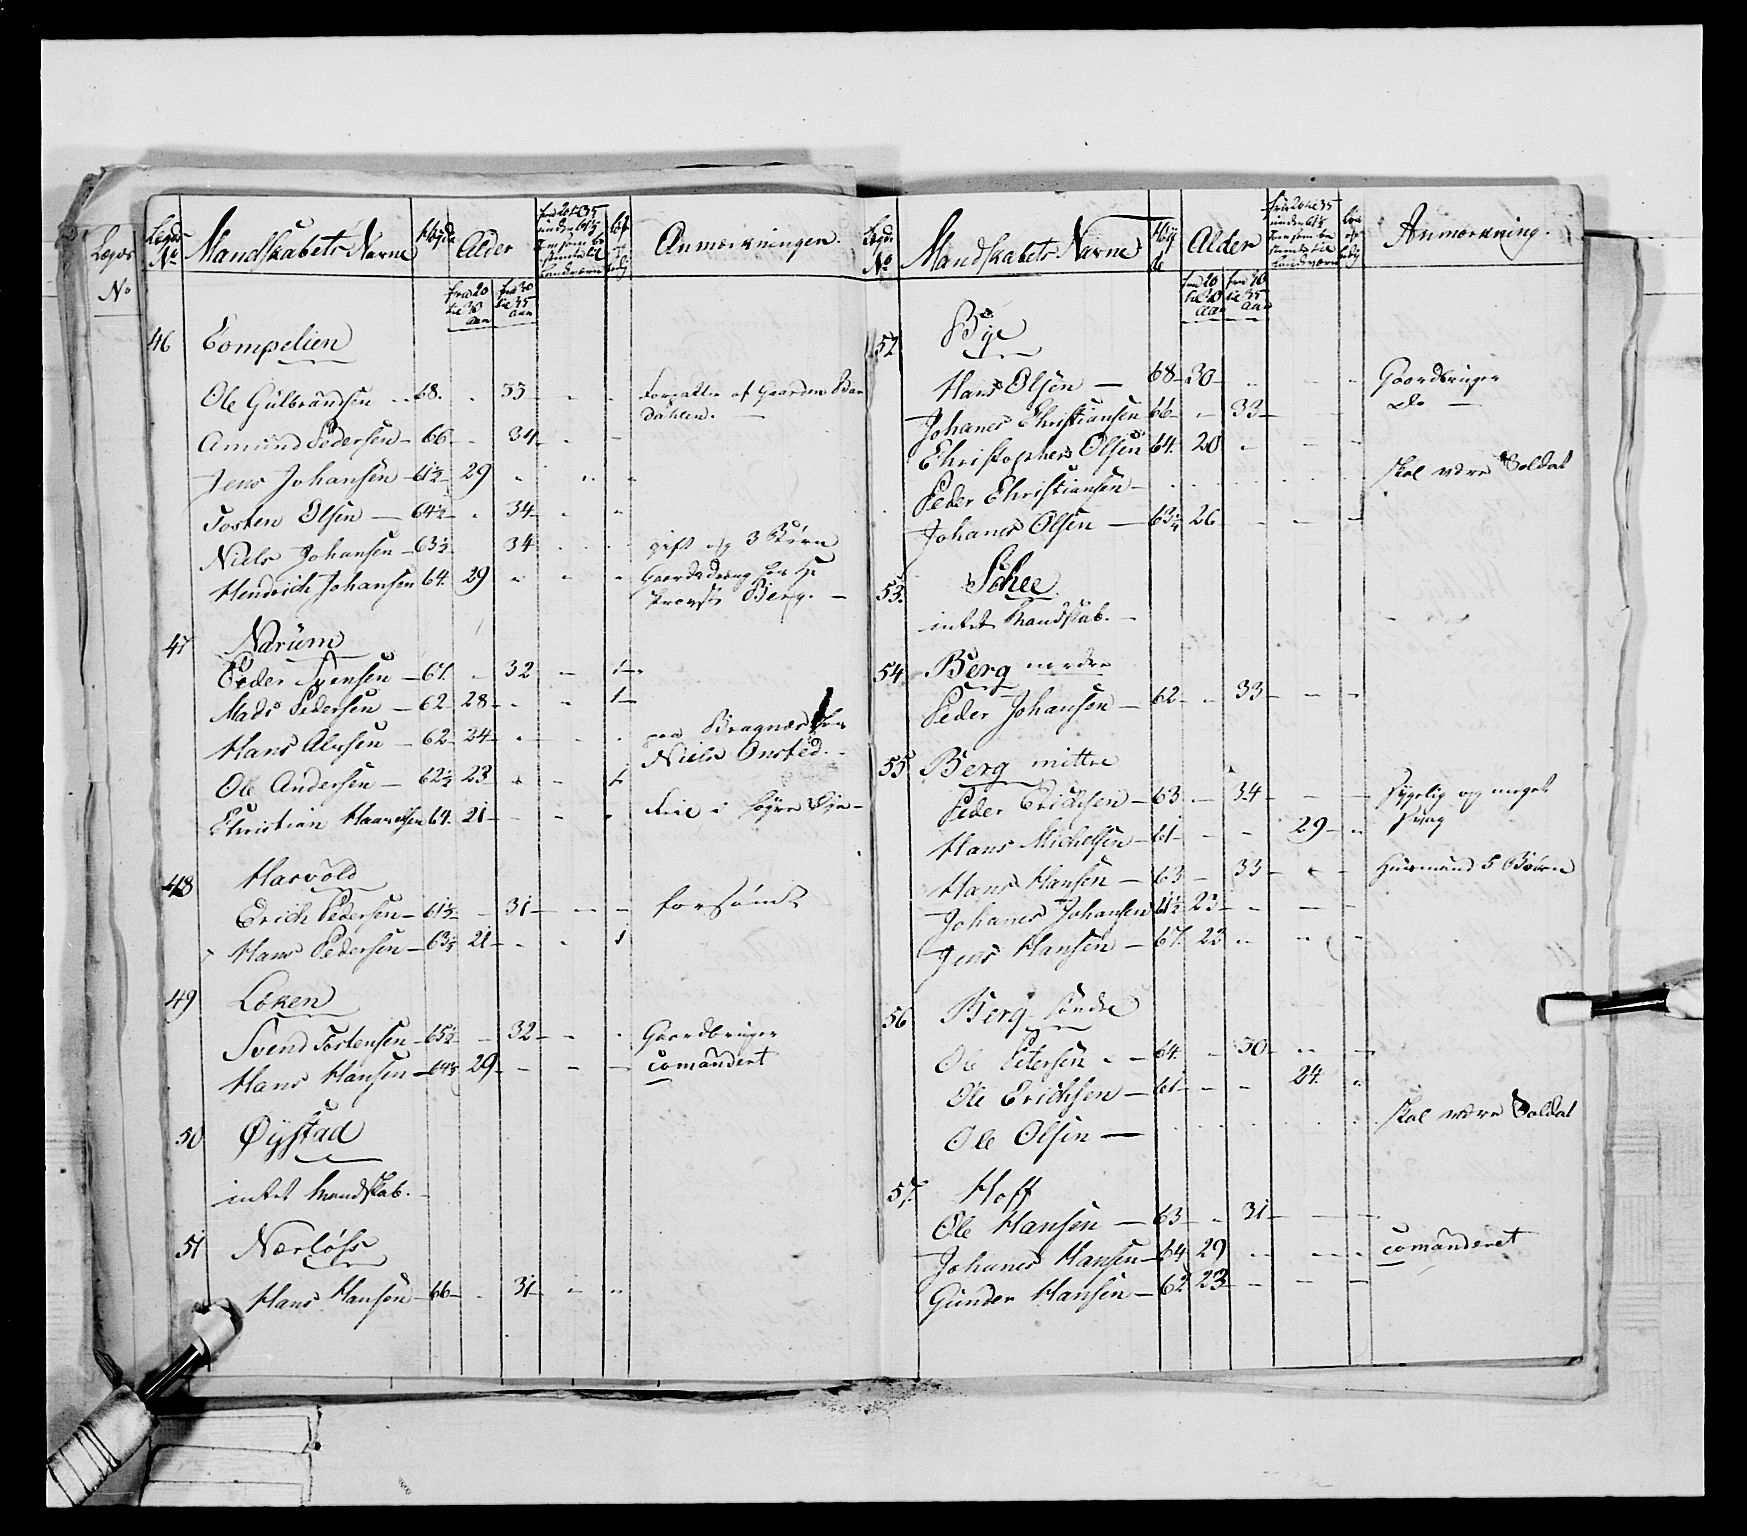 Lægs
No
Lægs No Mandskabets Navne Høyde Alder Anmærkningen.
fra 20 til 30 aar fra 30 til 35 aar
46 Tompelien
Ole Gülbrandsen 68. 33
Forsatter af Gaarden
dahlen.
Amund Pedersen 66 34
Jens Johansen 61½ 29
Tosten Olsen 64½ 34
Niels Johansen 63½ 34 gift og 3 Børn
Hendrich Johansen 64. 29 Gaardsdreng
Provst Berg.
47 Narüm
Peder Svensen 61. 32 1
Mads Pedersen 62 28 1
Hans Alfsen 62 24 paa Bragnæs
Niels Onsted.
Ole Andersen 62½ 23 1
Christian Haavelsen 64. 21
48 Harvold
Erich Pedersen 61½ 31 forsømt
Hans Pedersen 63½ 21 1
49 Løken
Svend Tostensen 65½ 32 Gaordbruger
Hans Hansen 64½ 29 comandert
50 Øystad
intet Mandskab.
51 Nærløss
Hans Hansen 66 31
Lægs No Mandskabets Navne Høyde Alder Anmærkning.
fra 20 til 30 aar fra 30 til 35 aar
52 Bÿe
Hans Olsen 68 30 Gaordbruger
Johanes Christiansen 66 33 Do
Christopher Olsen 64. 20
Peder Christiansen skal være Soldat
Johanes Olsen 63¼ 26
53. Schee.
intet Mandskab.
54 Berg nordre
Peder Johansen 62 33
55 Berg mittre
Peder Erichsen 63 34 sygelig og meget
svag
Hans Michelsen 61 29
Hans Hansen 63 33 Huusmand 5 Børn
Johanes Johansen 61½ 23
Jens Hansen 67. 23
56 Berg søndre
Ole Petersen 64 30
Ole Erichsen 61 24.
Ole Olsen skal være Soldat
57. Hoff
Ole Hansen 63 31
Johanes Hansen 64 29 comanderet
Gunder Hansen 62 23